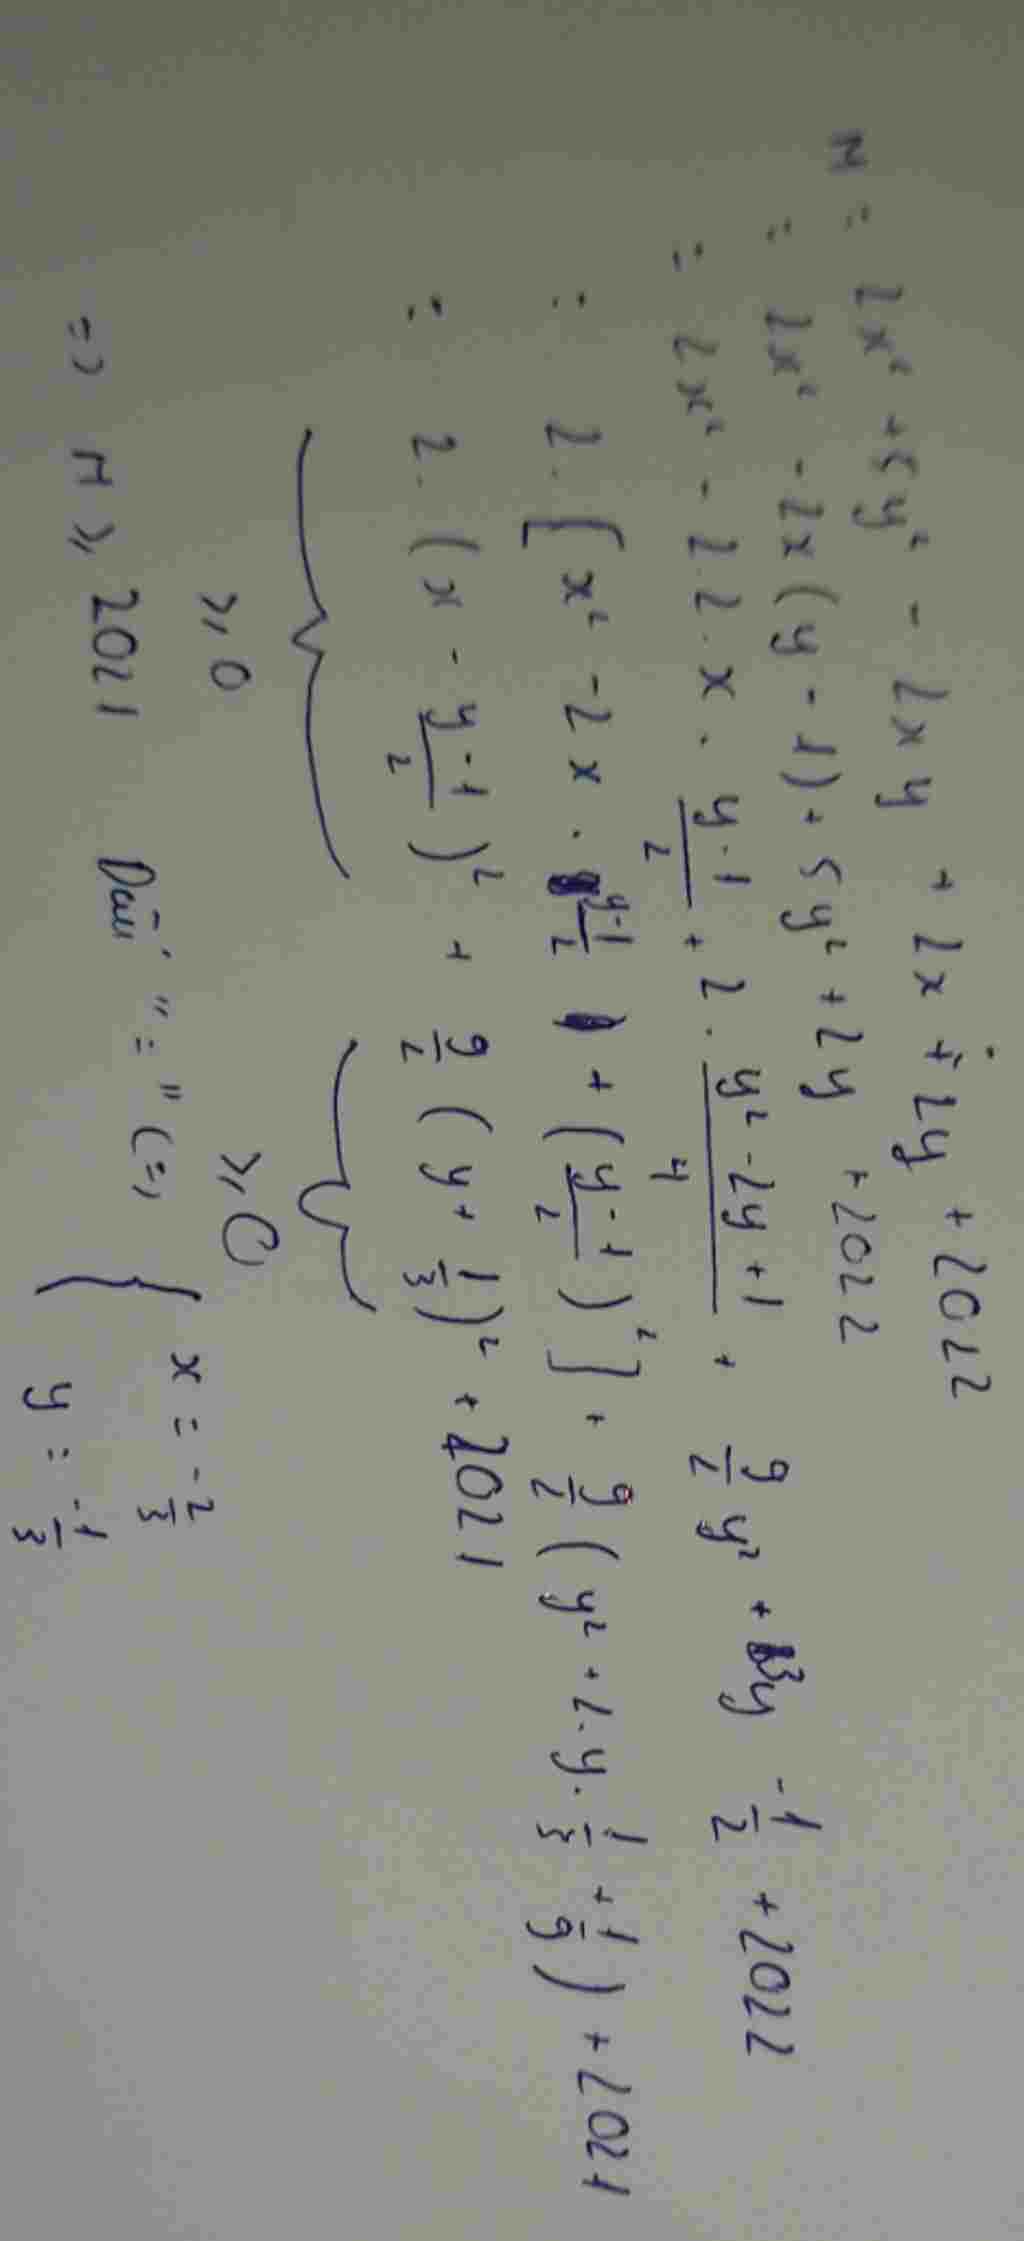 M = 2x² + 5y² - 2xy + 2x + 2y + 2022
= 2x² - 2x(y - 1) + 5y² + 2y + 2022
= 2x² - 2.2.x.\frac{y-1}{2} + 2.\frac{y²-2y+1}{4} + \frac{9}{2}y² + 3y - \frac{1}{2} + 2022
= 2.[x² - 2x.\frac{y-1}{2} + (\frac{y-1}{2})²] + \frac{9}{2}(y² + 2.y.\frac{1}{3} + \frac{1}{9}) + 2021
= 2.(x - \frac{y-1}{2})² + \frac{9}{2}(y + \frac{1}{3})² + 2021
⩾ 0 ⩾ 0
=> M ⩾ 2021 Dấu "=" (=) { x = -\frac{2}{3}
y = -\frac{1}{3}